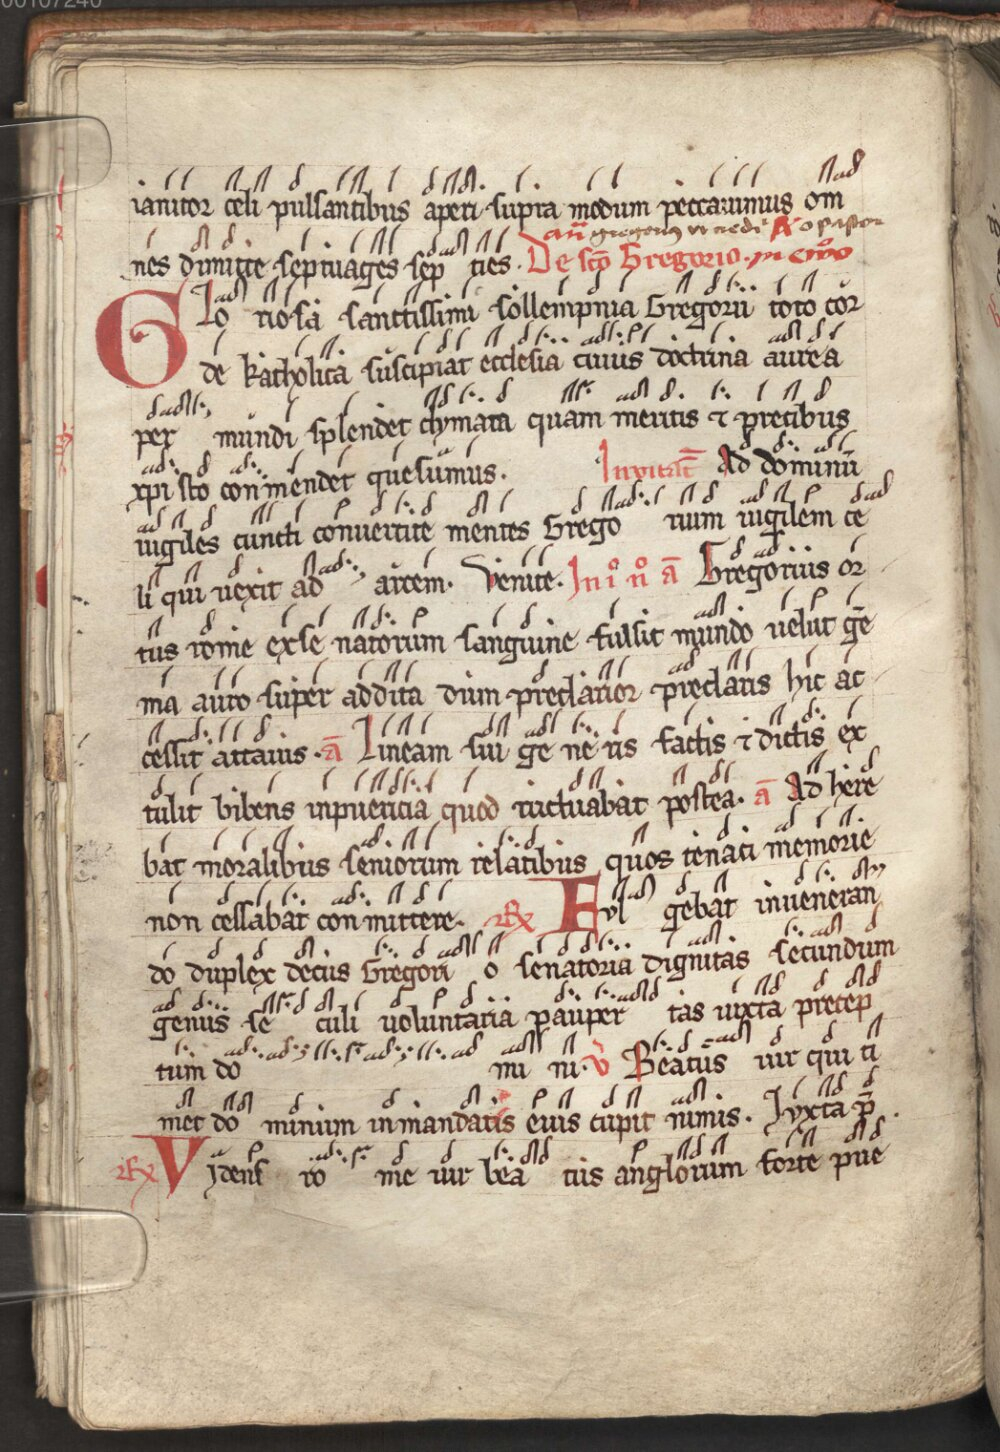 ianitor celi pulsantibus aperi supra modum peccauimus om
añ gregorius
nes dimitte septuages sep ties. De sc̄o Gregorio.
Glo riosa sanctissimi sollempnia Gregorii toto cor
de katholica suscipiat ecclesia cuius doctrina aurea
per mundi splendet clymata quam meritis ⁊ precibus
xpi sto conmendet quesumus. Inuitat̄ Ad dominū
uigiles cuncti conuertite mentes Grego rium uigilem ce
li qui uexit ad arcem. Venite. In i° n° a̅ Gregorius or
tus rome exse natorum sanguine fulsit mundo uelut gē
ma auro super addita dum preclarior preclaris hic ac
cessit attauis. a̅ Lineam sui ge ne ris factis ⁊ dictis ex
tulit bibens inpuericia quod ructuabat postea. a̅ Ad here
bat moralibus seniorum relatibus quos tenaci memorie
non cessabat conmittere. Rx Ful gebat inueneran
do duplex decus Gregori o senatoria dignitas secundum
genus se culi uoluntaria pauper tas iuxta precep
tum do mi ni. v̄ Beatus uir qui ti
met do minum inmandatis eius cupit nimis. Iuxta p̄.
Rx Videns ro me uir bea tus anglorum forte pue